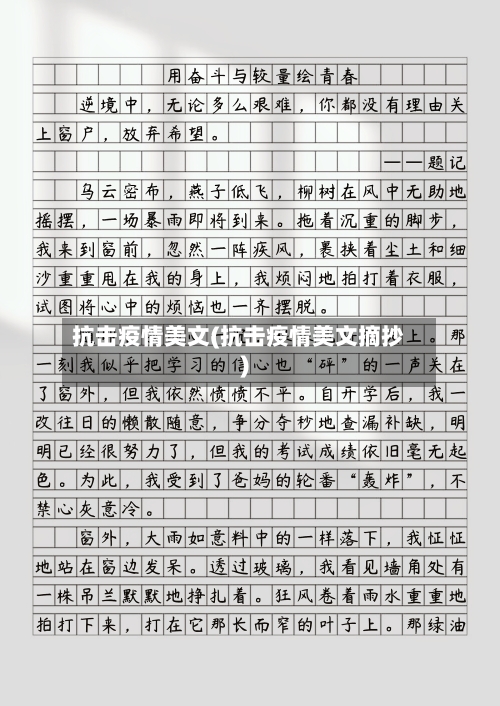 用奋斗与较量绘青春
逆境中，无论多么艰难，你都没有理由关
上窗户，放弃希望。
——题记
乌云密布，燕子低飞，柳树在风中无助地
摇摆，一场暴雨即将到来。拖着沉重的脚步，
我来到窗前，忽然一阵疾风，裹挟着尘土和细
沙重重甩在我的身上，我烦闷地拍打着衣服，
试图将心中的烦恼也一齐摆脱。
抗击疫情美文(抗击疫情美文摘抄
)
上。那
一刻我似乎把学习的信心也“砰”的一声关在
了窗外，但我依然愤愤不平。自开学后，我一
改往日的懒散随意，争分夺秒地查漏补缺，明
明已经很努力了，但我的考试成绩依旧毫无起
色。为此，我受到了爸妈的轮番“轰炸”，不
禁心灰意冷。
窗外，大雨如意料中的一样落下，我怔怔
地站在窗边发呆。透过玻璃，我看见墙角处有
一株吊兰默默地挣扎着。狂风卷着雨水重重地
拍打下来，打在它那长而窄的叶子上。那绿油